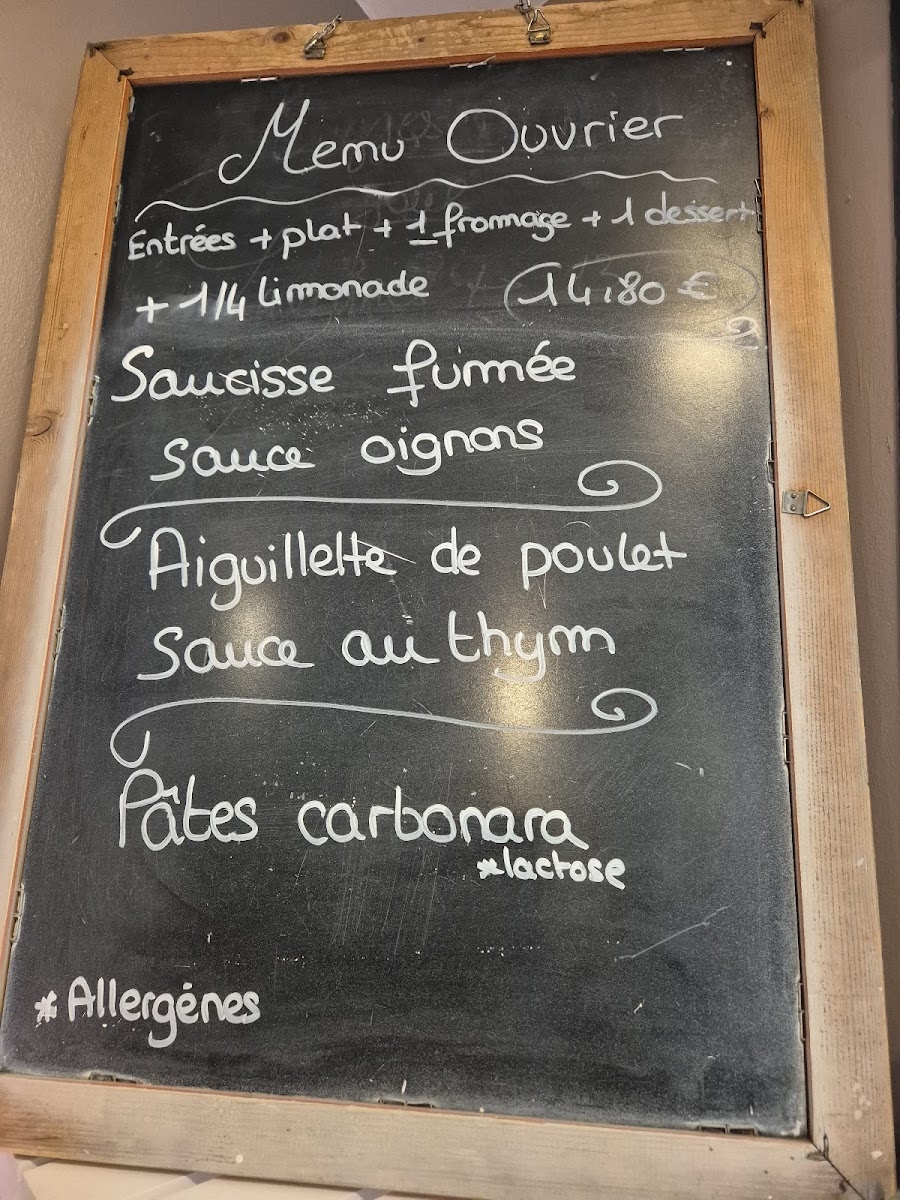 Menu Ouvrier
Entrées + plat + 1 fromage + 1 dessert
+ 1/4 Limonade 14,80 €
Saucisse fumée
sauce oignons
Aiguillette de poulet
sauce au thym
Pâtes carbonara
*lactose
*Allergénes